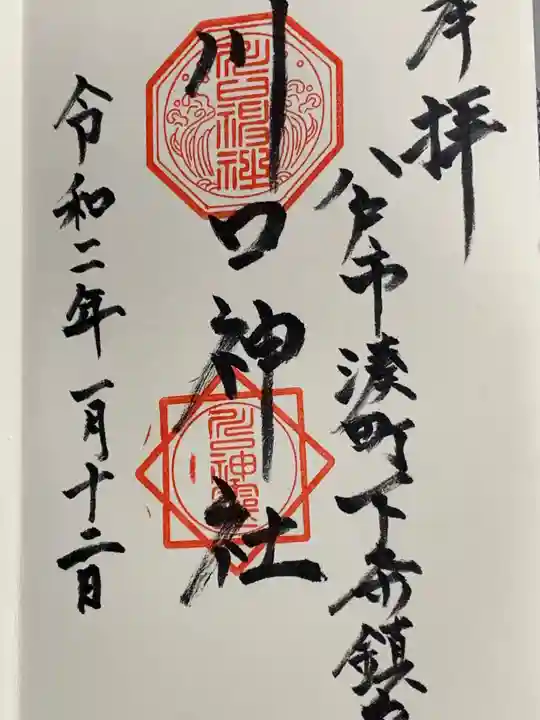 奉拝
八戸市湊町下条鎮
川口神社
令和二年一月十二日